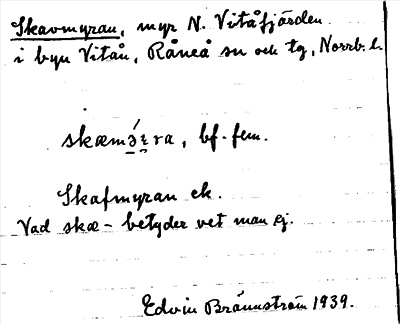 Skavmyran, myr N. Vitåfjärden
i byn Vitån, Råneå sn och tg, Norrb. l.
skæmǝ́ɪra, bf. fem.
Skafmyran ek.
Vad skæ- betyder vet man ej.
Edvin Brännström 1939.